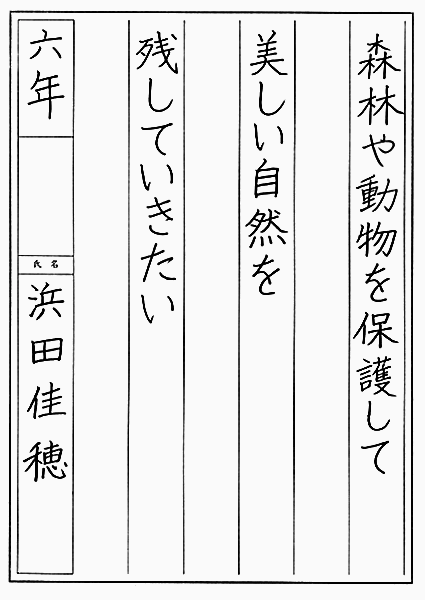 森林や動物を保護して
美しい自然を
残していきたい
六年
氏名
浜田佳穂